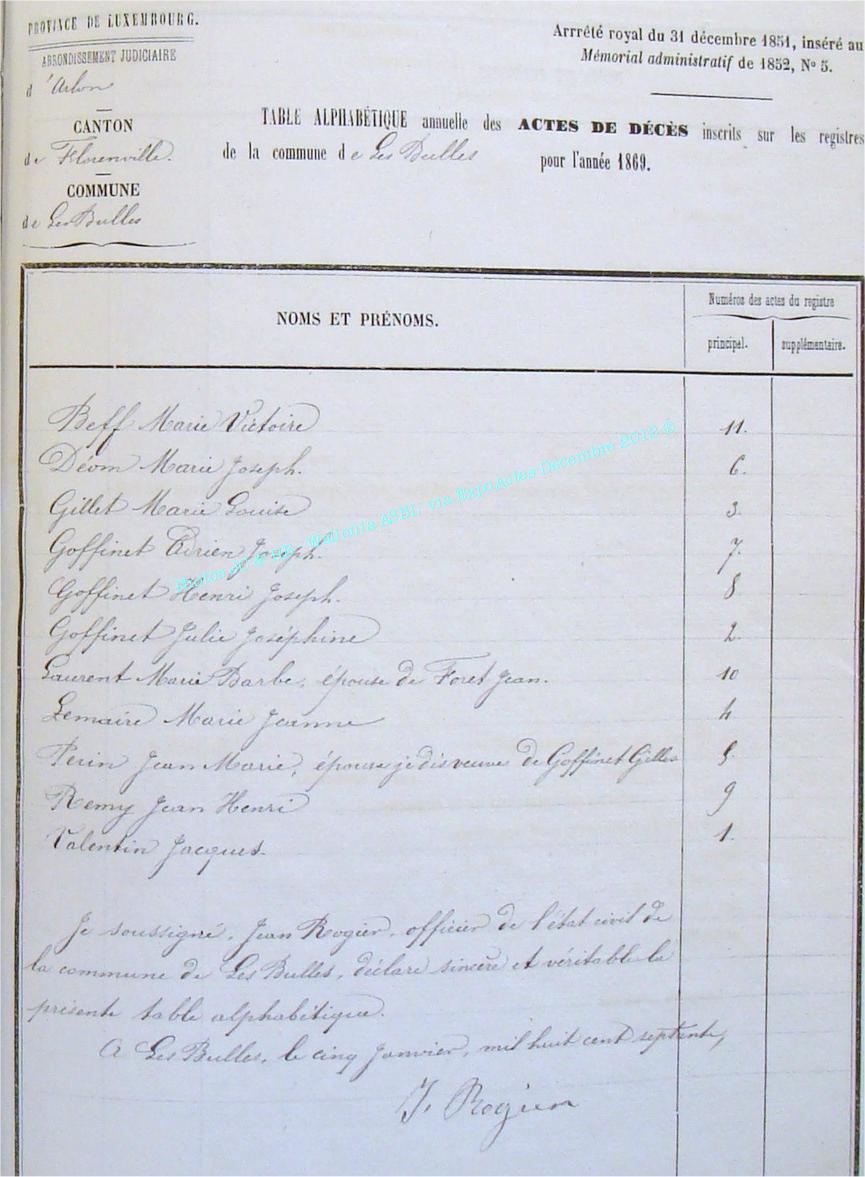 PROVINCE DE LUXEMBOURG.
ARRONDISSEMENT JUDICIAIRE
d'Arlon
CANTON
de Florenville.
COMMUNE
de Les Bulles
Arrrêté royal du 31 décembre 1851, inséré au
Mémorial administratif de 1852, N° 5.
TABLE ALPHABÉTIQUE annuelle des ACTES DE DÉCÈS inscrits sur les registres
de la commune de Les Bulles pour l'année 1869.
NOMS ET PRÉNOMS.
Numéros des actes du registre
principal. supplémentaire.
Beff Marie Victoire 11.
Déom Marie Joseph. 6.
Gillet Marie Louise 3.
Goffinet Adrien Joseph. 7.
Goffinet Henri Joseph. 8
Goffinet Julie Joséphine 2.
Laurent Marie Barbe, épouse de Foret Jean. 10
Lemaire Marie Jeanne 4
Perin Jean Marie, épouse je dis veuve de Goffinet Gilles 5.
Remy Jean Henri 9
Valentin Jacques. 1.
Je soussigné, Jean Rogier, officier de l'état civil de
la commune de Les Bulles, déclare sincère et véritable la
présente table alphabétique.
A Les Bulles, le cinq Janvier, mil huit cent septante,
J. Rogier
Wallonia ASBL via ExpoActes Decembre 2012 ©